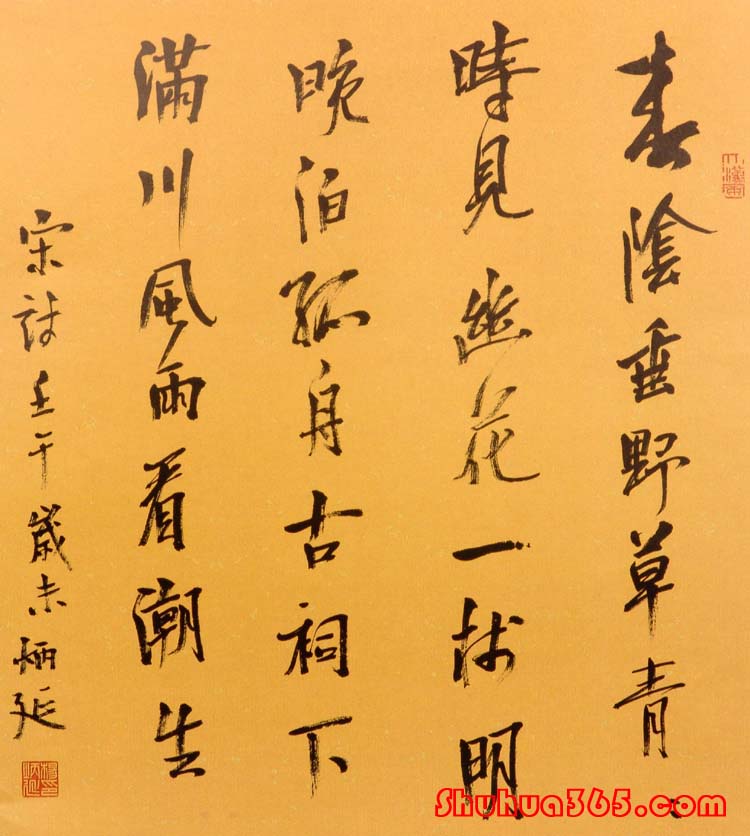 春陰垂野草青〻
時見幽花一樹明
晚泊孤舟古祠下
滿川風雨看潮生
宋詩壬午歲末炳延
Shuhua365.com